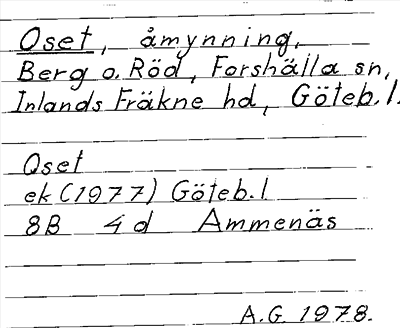 Oset, åmynning,
Berg o. Röd, Forshälla sn,
Inlands Fräkne hd, Göteb.l.
Oset
ek (1977) Göteb.l
8B 4d Ammenäs
A.G. 1978.